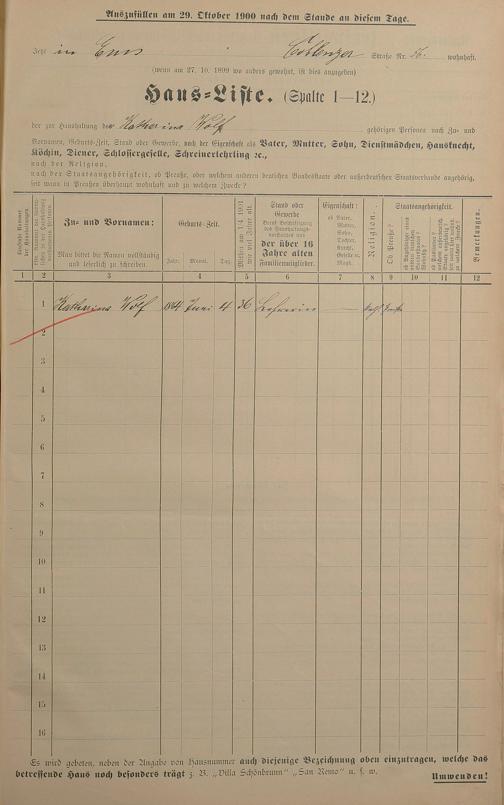 Auszufüllen am 29. Oktober 1900 nach dem Stande an diesem Tage.
Jetzt in Ems Coblenzer Straße Nr. 56. wohnhaft.
(wenn am 27. 10. 1899 wo anders gewohnt, ist dies anzugeben)
Haus-Liste. (Spalte 1—12.)
der zur Haushaltung der Katharina Wolf gehörigen Personen nach Zu- und
Vornamen, Geburts-Zeit, Stand oder Gewerbe, nach der Eigenschaft als Vater, Mutter, Sohn, Dienstmädchen, Hausknecht,
Köchin, Diener, Schlossergeselle, Schreinerlehrling ꝛc.,
nach der Religion,
nach der Staatsangehörigkeit, ob Preuße, oder welchem anderen deutschen Bundesstaate oder außerdeutschen Staatsverbande angehörig,
seit wann in Preußen überhaupt wohnhaft und zu welchem Zwecke?
Zu- und Vornamen:
Man bittet die Namen vollständig
und leserlich zu schreiben.
Geburts-Zeit.
Jahr. Monat. Tag.
Stand oder
Gewerbe
der über 16
Jahre alten
Familienmitglieder.
Eigenschaft:
ob Vater,
Mutter,
Sohn,
Tochter,
Knecht,
Geselle o.
Magd.
Religion.
Staatsangehörigkeit.
Ob Preuße?
Bemerkungen.
1 2 3 4 5 6 7 8 9 10 11 12
1 Katharina Wolf 1864 Juni 4 36 Lehrerin — kath.
2
3
4
5
6
7
8
9
10
11
12
13
14
15
16
Es wird gebeten, neben der Angabe von Hausnummer auch diejenige Bezeichnung oben einzutragen, welche das
betreffende Haus noch besonders trägt z. B. „Villa Schönbrunn" „San Remo" u. s. w.
Umwenden!